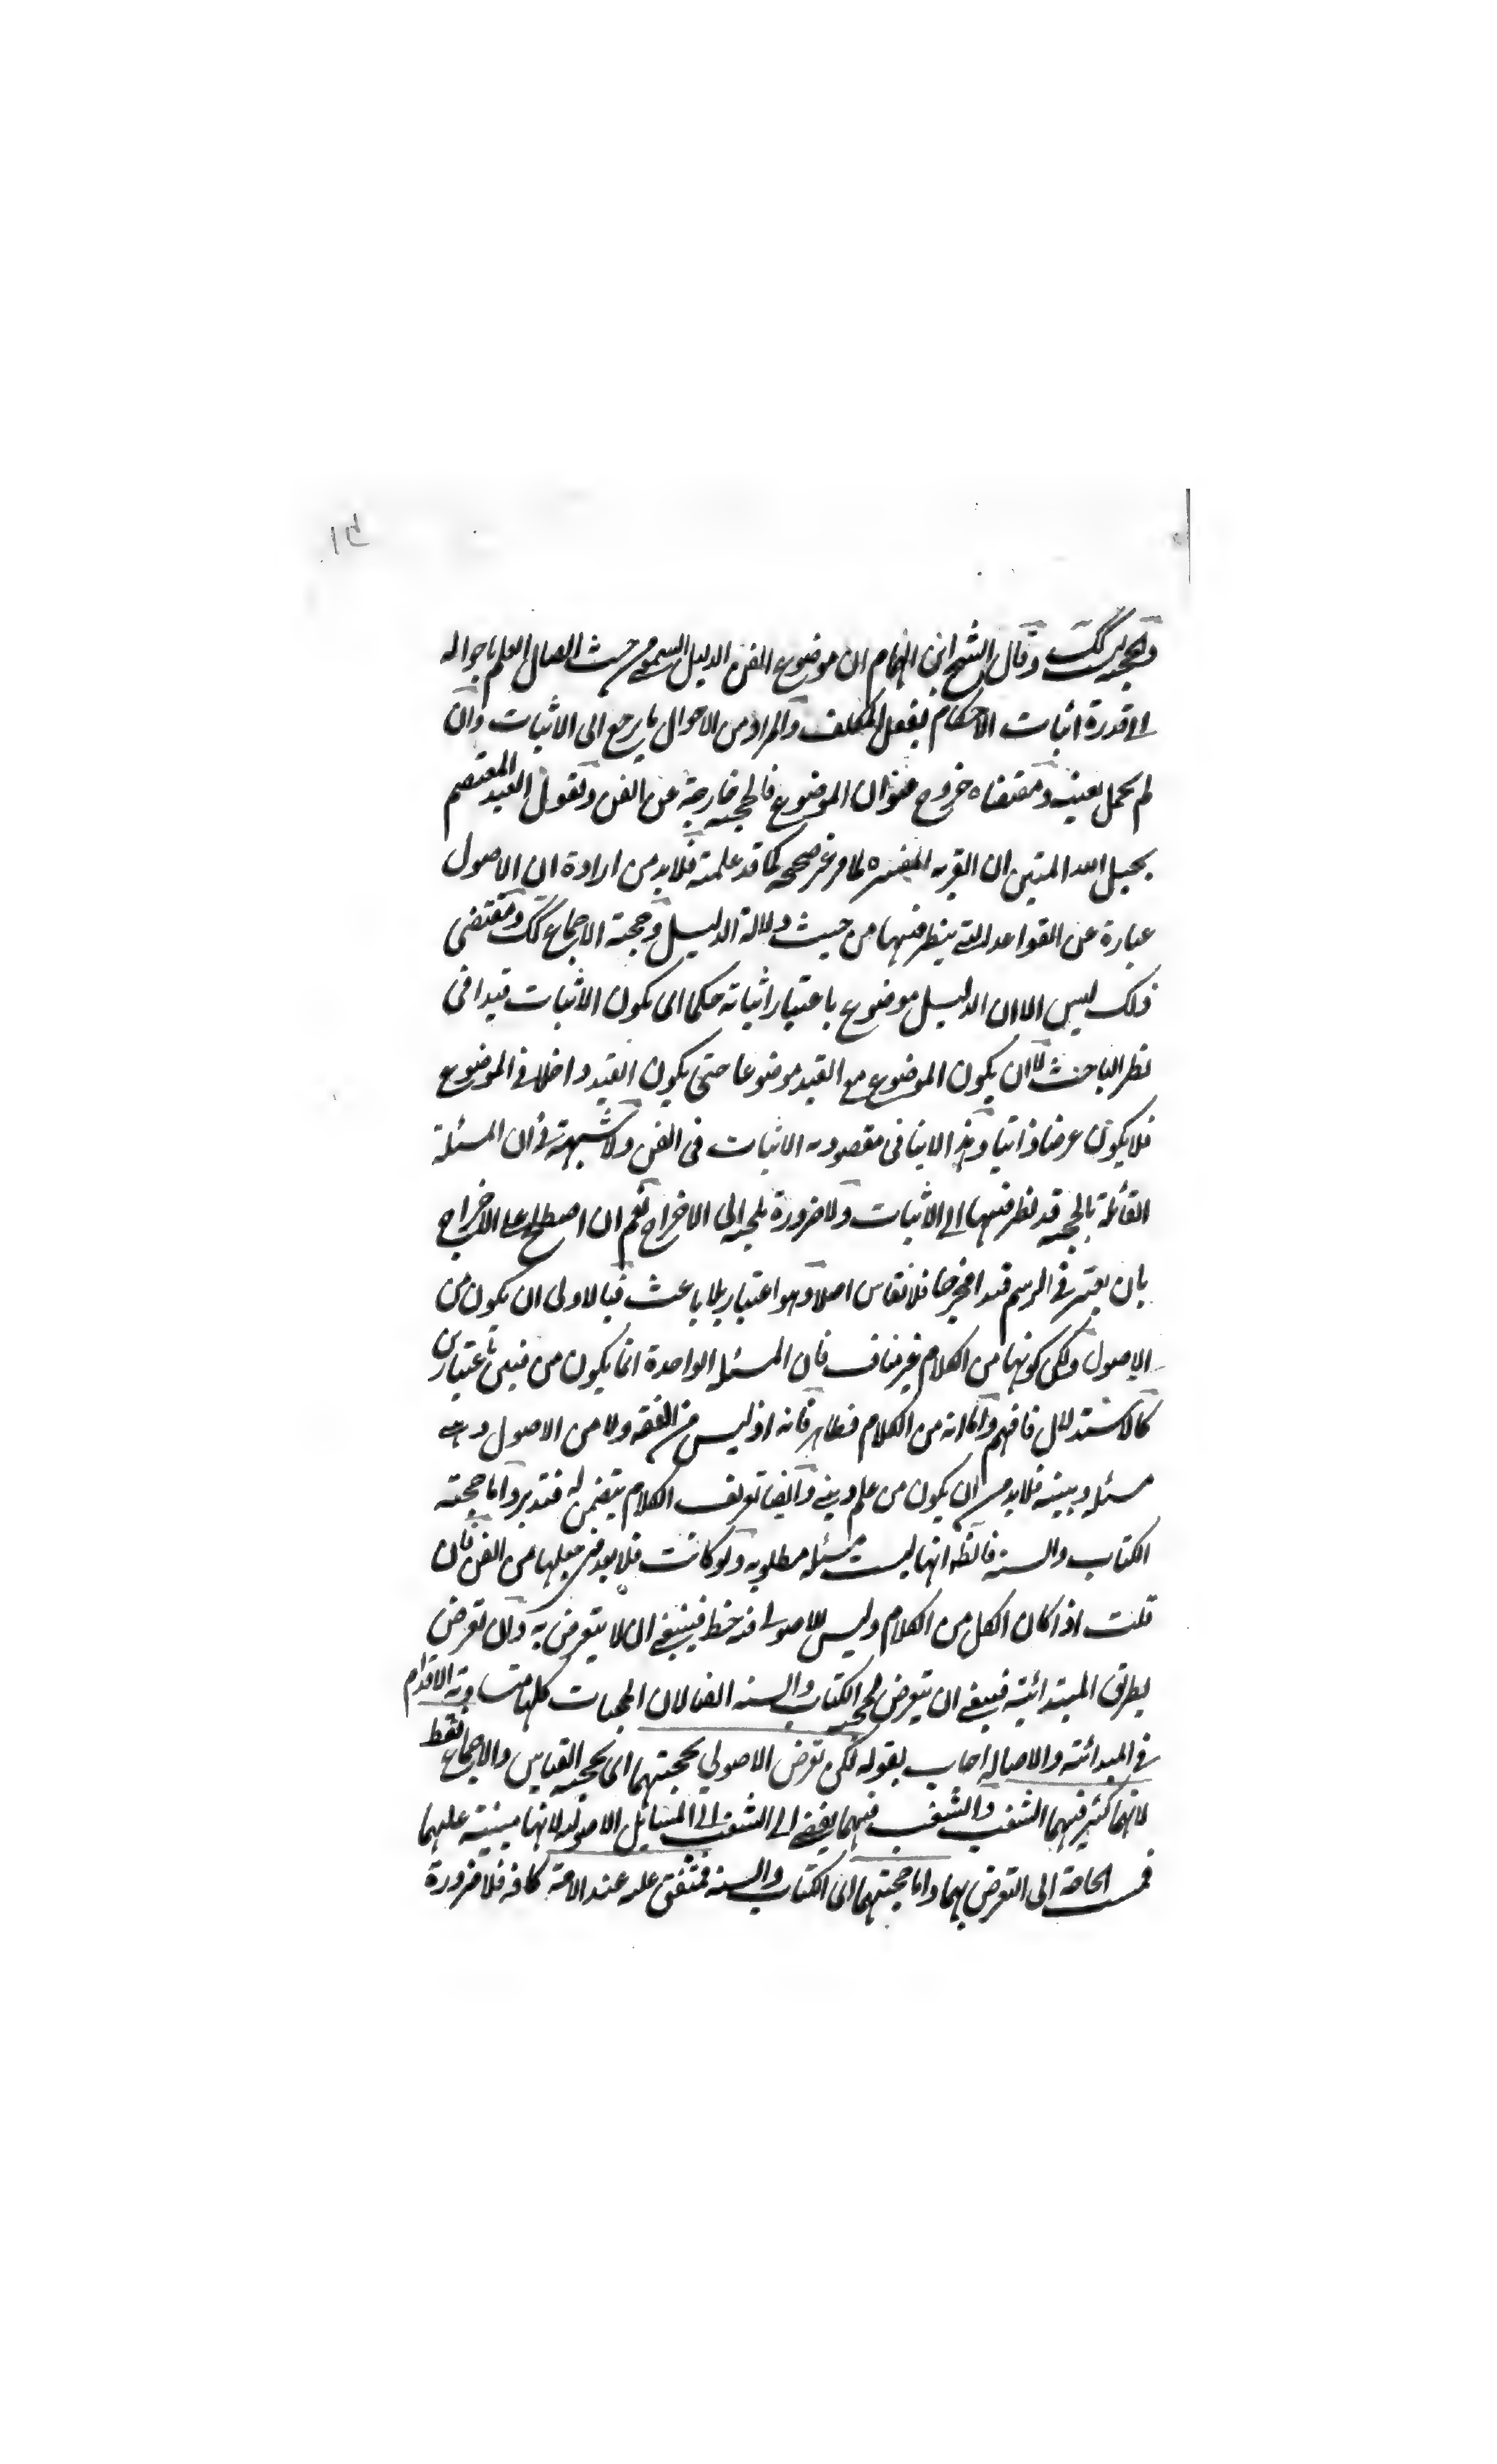 والحجية ليس كك وقال الشيخ ابن الهمام ان موضوع الفن الدليل السمعي من حيث ايصال العلم باحواله
الى قدرة اثبات الاحكام لفعل المكلف والمراد من الاحوال ما يرجع الى الاثبات وان
لم يحمل بعينه ومقتضاه خروج عنوان الموضوع فالحجية خارجة عن الفن ونقول العبد المعتصم
بحبل الله المتين ان القريه المفسره لما مر غير صحيحه كما قد علمته فلابد من ارادة ان الاصول
عبارة عن القواعد التي ينظر فيها من حيث دلالة الدليل وحجية الاجماع كك ومقتضى
ذلك ليس الا ان الدليل موضوع باعتبار اثباته حكما اى يكون الاثبات قيدا فى
نظر الباحث لا ان يكون الموضوع مع القيد موضوعا حتى يكون القيد داخلا فى الموضوع
فلا يكون عرضا ذاتيا وهذا لا ينافى مقصودية الاثبات فى الفن ولا شبهة في ان المسئلة
القائلة بالحجية قد نظر فيها الى الاثبات ولا ضرورة ملجية الى الاخراج نعم ان اصطلح على الاخراج
بان يعتبر فى الرسم قيدا مخرجا فلا نقاش اصلا وهو اعتبار بلا باعث فبالاولى ان يكون من
الاصول ولكن كونها من الكلام غير مناف فان المسئلة الواحدة انما يكون من فنين باعتبارين
كالاستدلال فافهم واما انه من الكلام فظاهر فانه اذ ليس من الفقه ولا من الاصول وهى
مسئلة دينية فلابد من ان يكون من علم دينى وايضا تعريف الكلام يتضمن له فتدبر واما حجية
الكتاب والسنه فالظه انها ليست مسئلة مطلوبه ولو كانت فلا بعد فى جعلها من الفن فان
قلت اذا كان الكل من الكلام وليس للاصولى فيه حظ فينبغى ان لا يتعرض به وان تعرض
بطريق المبتدائية فينبغى ان يتعرض لحجية الكتاب والسنه ايضا لان الحجيات كلها متساوية الاقدام
فى المبدائية والاصالة اجاب بقوله لكن تعرض الاصولي لحجيتهما اى لحجية القياس والاجماع فقط
لانهما كثير فيهما الشغب والشغب فيهما يفضى الى الشغب الى المسائل الاصولية لانها مبنية عليهما
فمست الحاجة الى التعرض بهما واما حجيتهما اى الكتاب والسنه فمتفق عليه عند الامة كافه فلا ضرورة